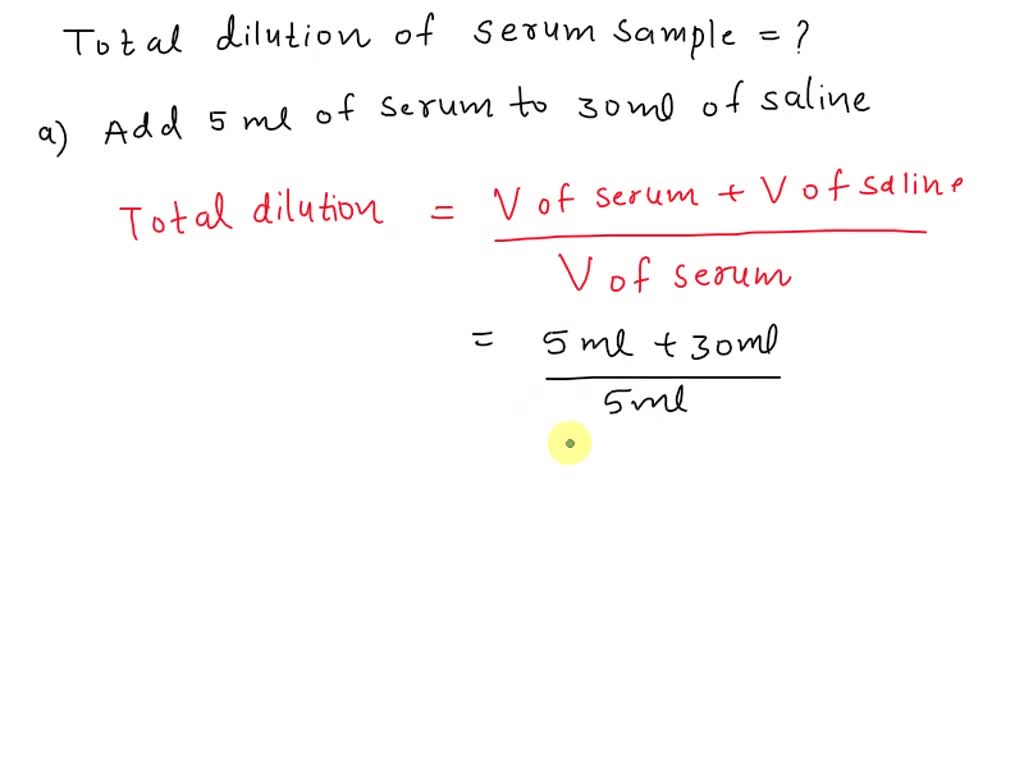 Total dilution of serum sample = ?
a) Add 5 ml of serum to 30ml of saline
Total dilution = V of serum + V of saline
V of serum
= 5 ml + 30ml
5ml